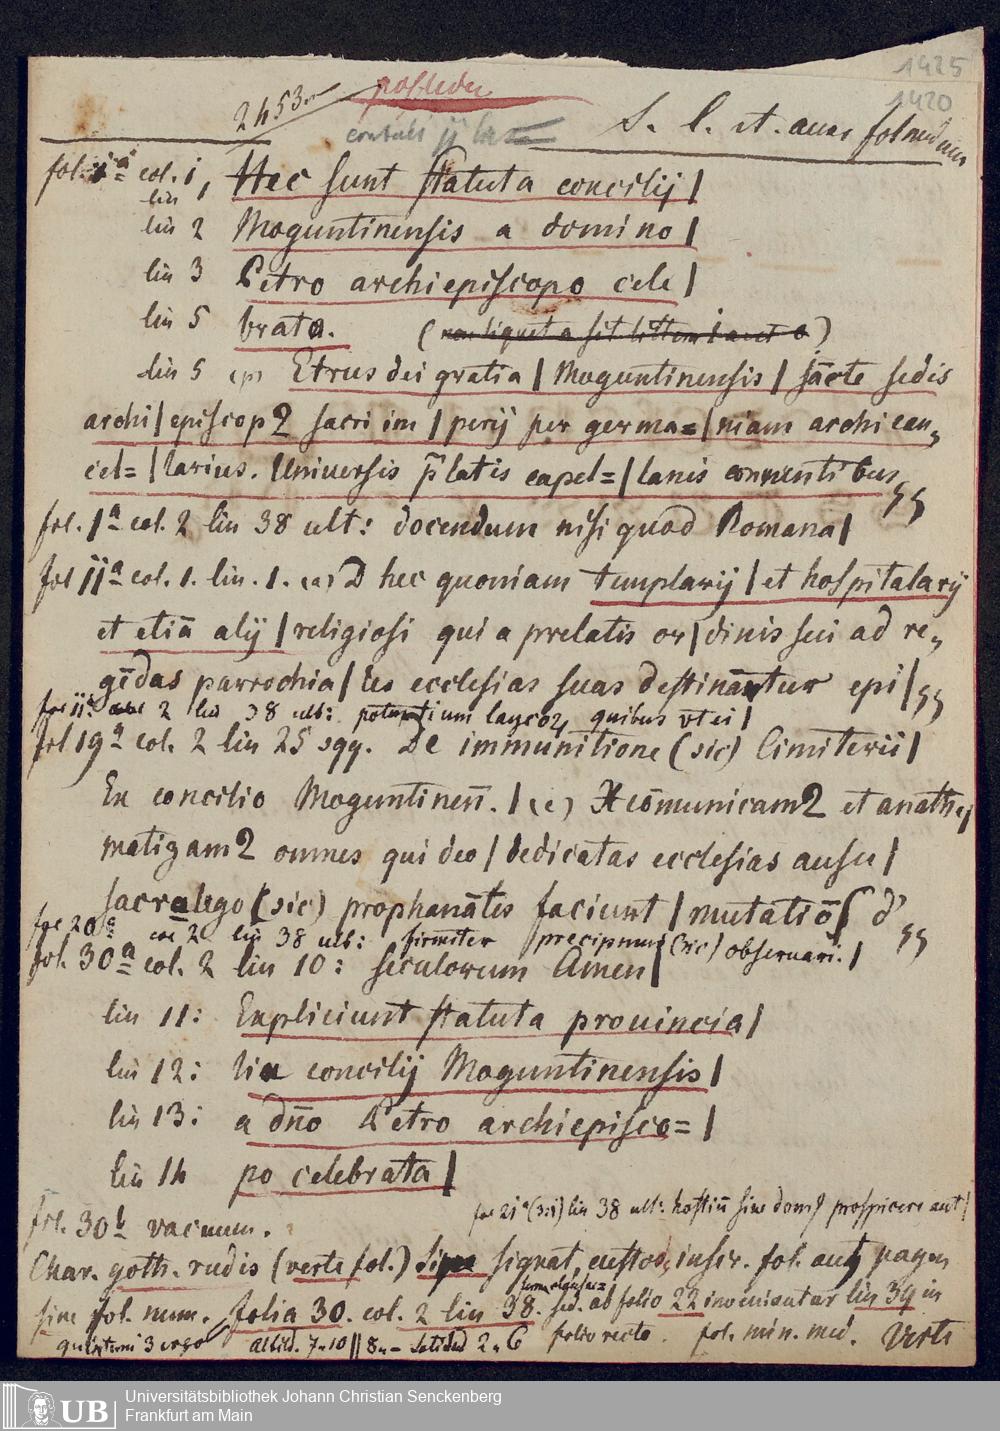 1425
1420
2453
S. l. et. anno fol
fol. 1ª col. 1, Hec sunt statuta concilij |
lin 1
lin 2 Moguntinensis a domino |
lin 3 Petro archiepiscopo cele |
lin 5 brata. (non liquet a sit littera i aut o)
lin 5 (p) Etrus dei gratia | Moguntinensis | sācte sedis
archi | episcopꝰ sacri im | perij per germa= | niam archi can„
cel= | larius. Universis p̄latis capel= | lanis conuenti bus
fol. 1ª col. 2 lin 38 ult: docendum nisi quod Romana |
fol ijª col. 1. lin. 1. (a) D hec quoniam templarij | et hospitalarij
et etiā alij | religiosi qui a prelatis or | dinis sui ad re„
gēdas parrochia | les ecclesias suas destināntur epi |
2 lin 38 ult: layco quibus vt ei |
fol 19ª col. 2 lin 25 sqq. De immunitione (sic) Cimiterii |
Ex concilio Moguntinen̄. | (e) Xcōmunicamꝰ et anathe |
matizamꝰ omnes qui deo | dedicatas ecclesias ausu |
sacralego (sic) prophanātes faciunt | mutatiō
fol 20ª col 2 lin 38 ult: firmiter precipimus (sic) obseruari. |
fol. 30ª col. 2 lin 10: seculorum Amen |
lin 11: Expliciunt statuta prouincia |
lin 12: lia concilij Moguntinensis |
lin 13: a dn̄o Petro archiepisco= |
lin 14 po celebrata |
fol 21ª lin 38 ult: hostiū siue prospicere aut |
fol. 30b vacuum.
Char. goth. rudis (verte fol.) Sine signat, custod, inscr. fol. aut pagin
sine fol. num. folia 30. col. 2 lin 38. sed. ab folio 22 inveniuntur lin 39 in
folio recto. fol. min. med. Verte
3 ergo 7.10 || 8
Universitätsbibliothek Johann Christian Senckenberg
Frankfurt am Main
UB